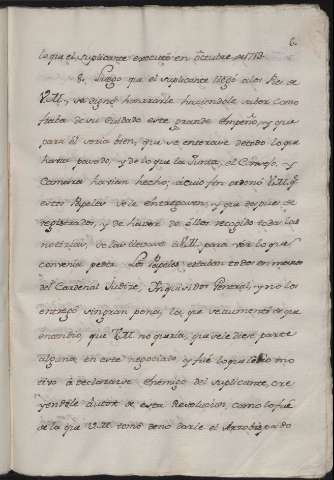 6.
lo que el Suplicante executó en Octubre de 1713.
8. Luego que el Suplicante llegó a los Pies de
V.M., se dignó honrarle haciendole saber como
fiaba de su Cuidado este grande Empeño, y que
para él seria bien, que se enterase de todo lo que
havia pasado, y de lo que la Junta, el Consejo, y
Camara havian hecho; a cuio fin ordenó V.M. q.
estos Papeles se le entregasen, y que despues de
registrados, y de haver de ellos recogido todas las
noticias, se las llevase a V.M. para ver lo que
convenia pedir. Los Papeles estaban todos en mano
del Cardenal Judice, Inquisidor General, y no los
entregó sin gran pena, la que se aumentó de que
entendió, que V.M. no queria, que se le diese parte
alguna en este negociado, y fué lo que le dió mo
tivo á declararse Enemigo del Suplicante, cre
yendole Autor de esta Resolucion, como lo fué
de la que V.M. tomó de no darle el Arzobispado